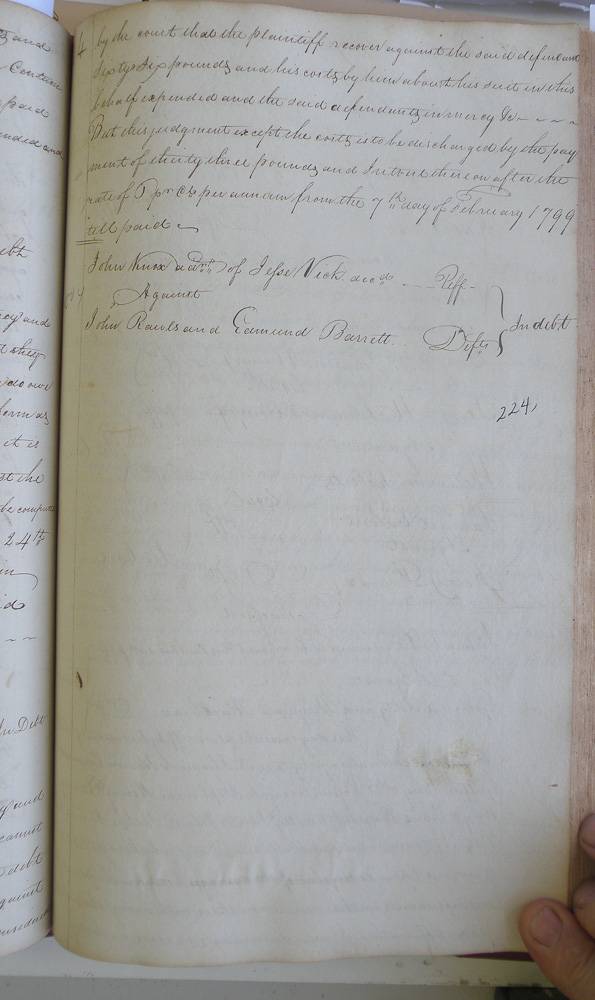 by the court that the plaintiff recover against the said defendant
sixty six pounds and his costs by him about his suit in this
behalf expended and the said defendants in mercy &c - - - -
But this judgment except the costs is to be discharged by the pay
ment of thirty three pounds and Interest thereon after the
rate of 5 pr Ct per annum from the 7th day of February 1799
till paid
John Knox adm. of Jesse Vick decd Plff
Against
John Rawls and Edmund Barrett Defts
In debt
224,
and
Contain
paid
ended and
ebt
cy and
form as
it is
st the
be compu
24th
in
id
In Debt
y and
cannot
debt
against